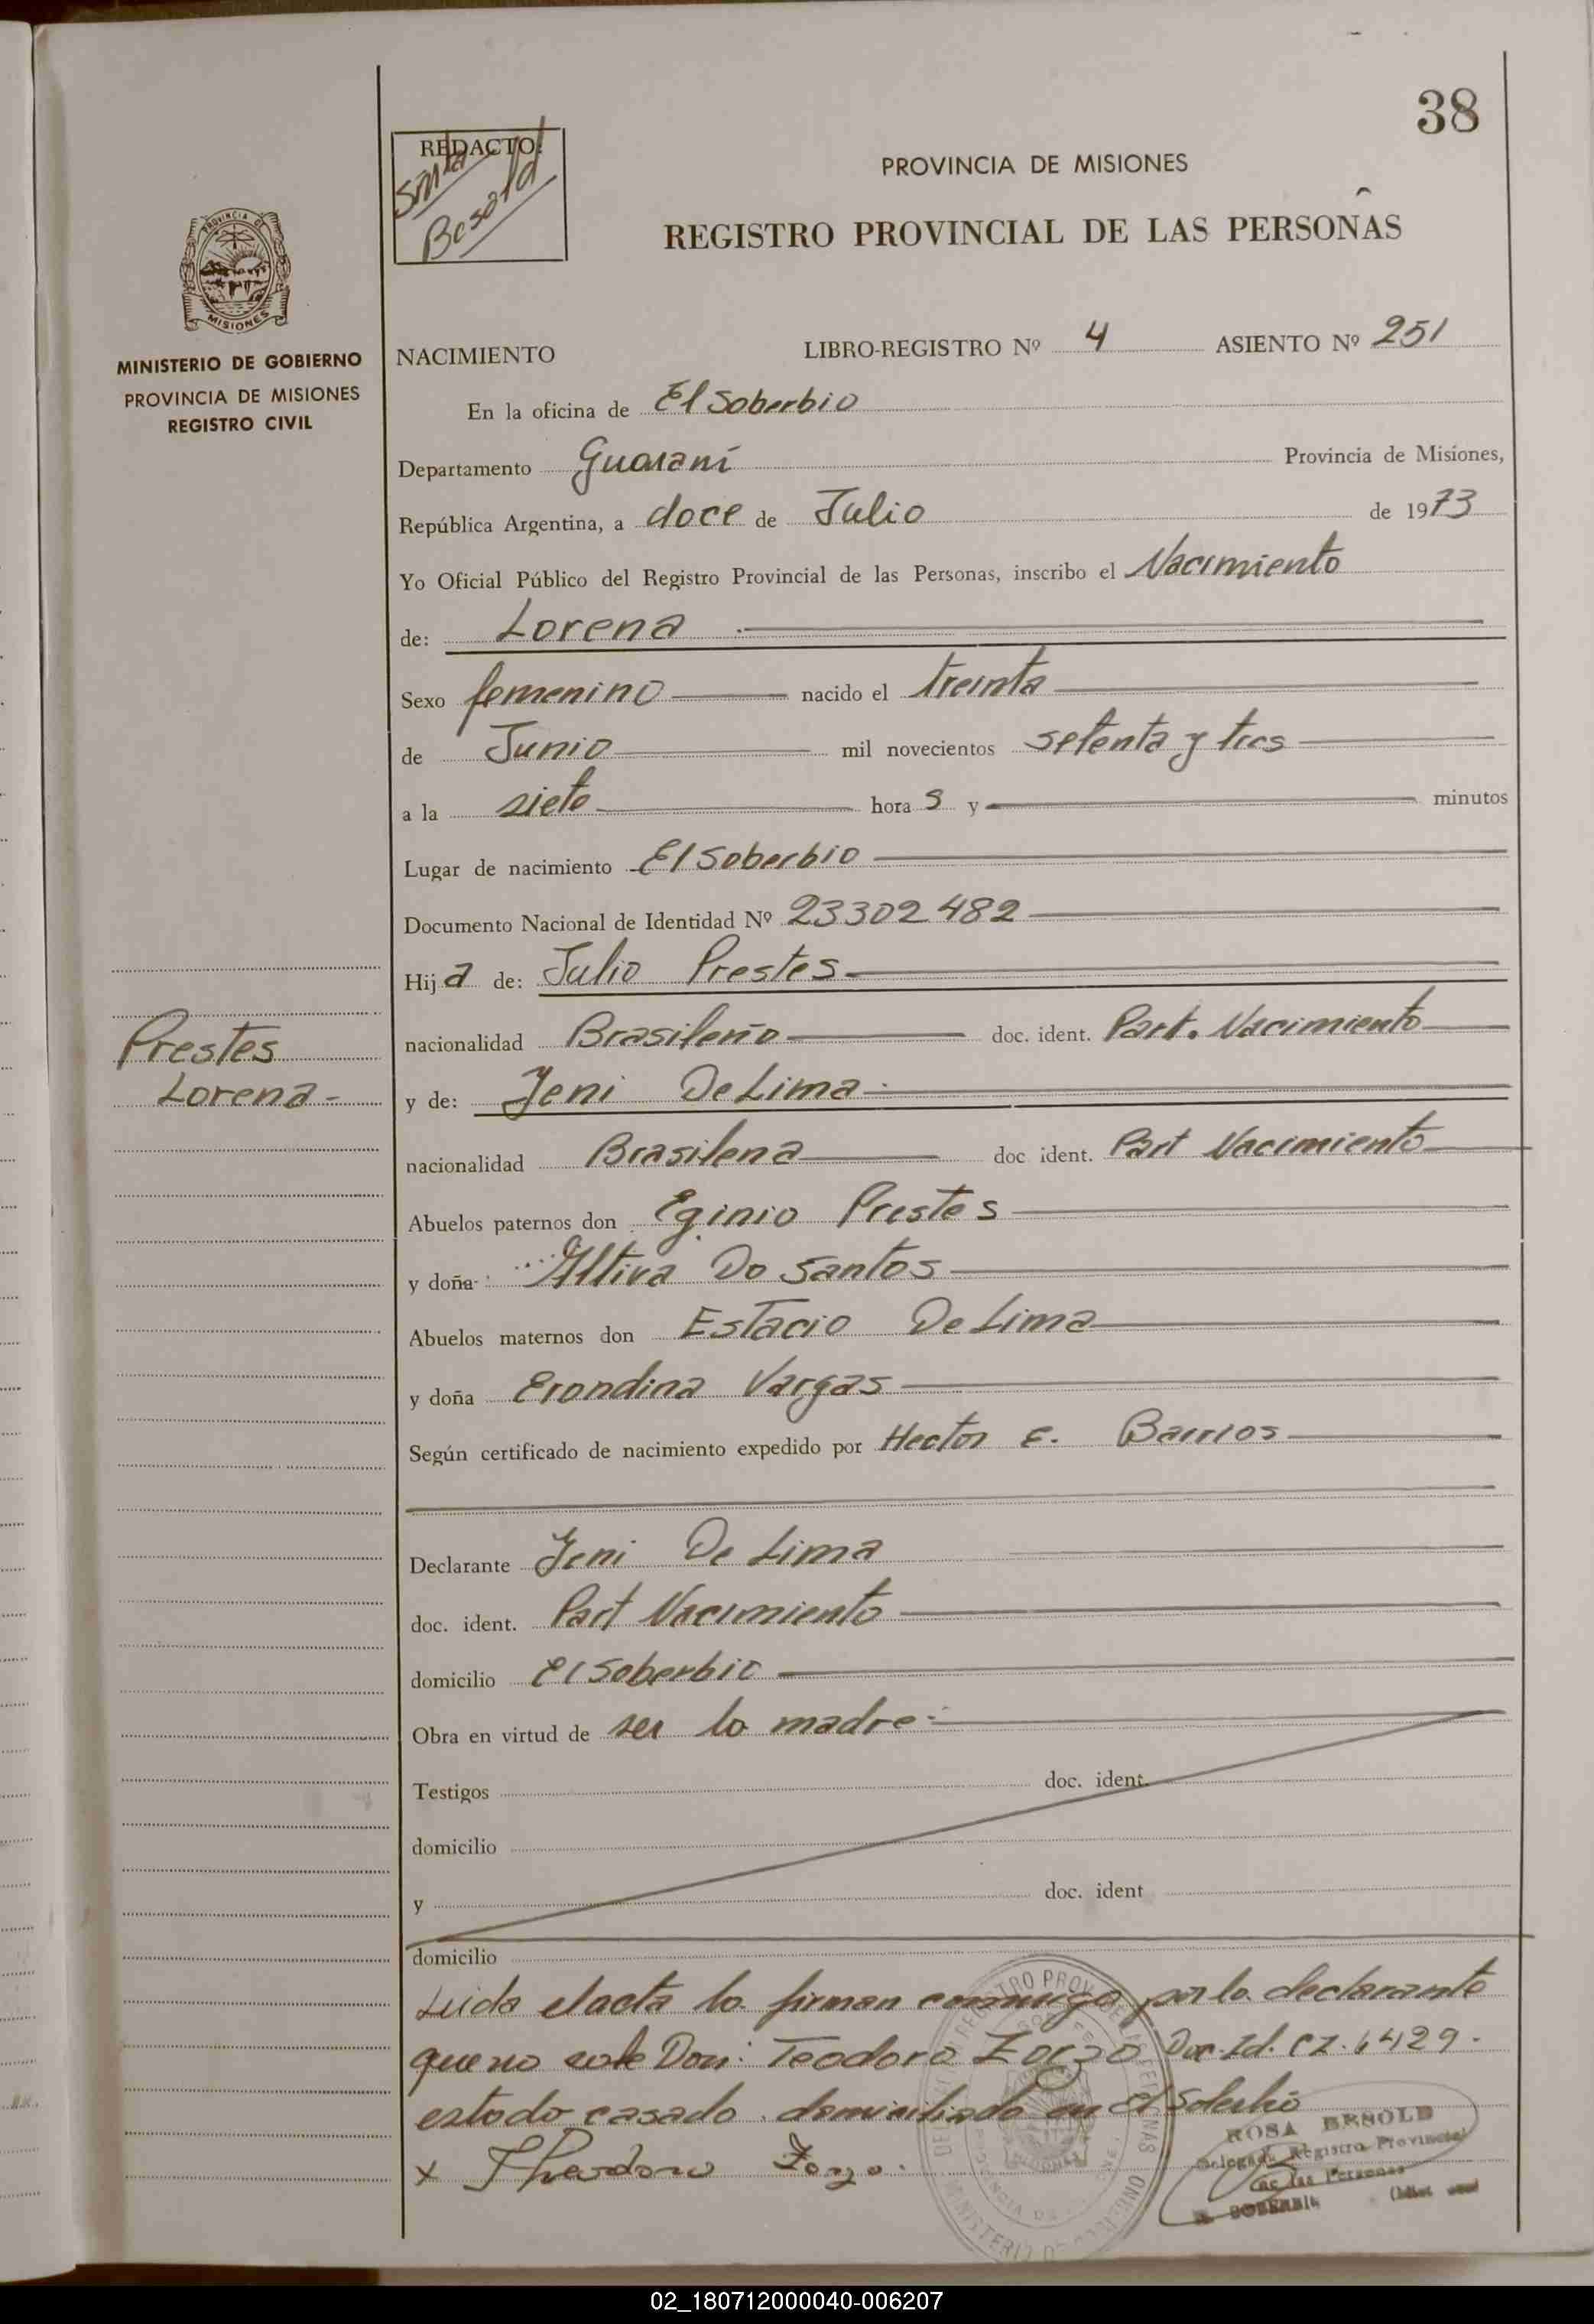 38
REDACTO:
Smta
Besold
PROVINCIA DE MISIONES
REGISTRO PROVINCIAL DE LAS PERSONAS
MISIONES
MINISTERIO DE GOBIERNO
PROVINCIA DE MISIONES
REGISTRO CIVIL
NACIMIENTO LIBRO-REGISTRO Nº 4 ASIENTO Nº 251
En la oficina de El Soberbio
Departamento Guaraní Provincia de Misiones,
República Argentina, a doce de Julio de 1973
Yo Oficial Público del Registro Provincial de las Personas, inscribo el Nacimiento
de: Lorena
Sexo femenino nacido el treinta
de Junio mil novecientos setenta y tres
a la siete hora s y minutos
Lugar de nacimiento El Soberbio
Documento Nacional de Identidad Nº 23302482
Hija de: Julio Prestes
Prestes
Lorena-
nacionalidad Brasileño doc. ident. Part. Nacimiento
y de: Jeni De Lima
nacionalidad Brasilena doc ident. Part Nacimiento
Abuelos paternos don Eginio Prestes
y doña Altiva Do Santos
Abuelos maternos don Estacio De Lima
y doña Erondina Vargas
Según certificado de nacimiento expedido por Hector E. Barrios
Declarante Jeni De Lima
doc. ident. Part Nacimiento
domicilio El Soberbio
Obra en virtud de ser la madre
Testigos doc. ident.
domicilio
y doc. ident
domicilio
Leida el acta la firman conmigo por la declarante
que no sabe Don: Teodoro Zorzo Doc. Id. CZ.
estado casado domiciliado en El Soberbio
x Theodoro Zorzo.
ROSA BESOLD
Delegada Registro Provincial
de las Personas
EL SOBERBIO